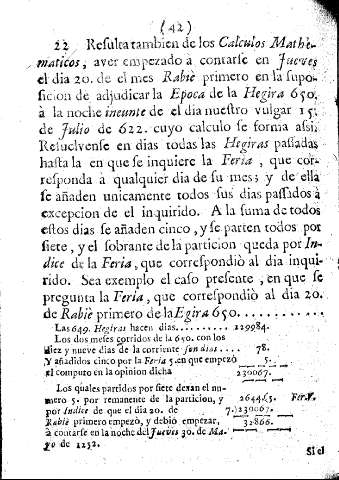 (42)
22 Resulta tambien de los Calculos Mathe-
maticos, aver empezado à contarse en Jueves
el dia 20. de el mes Rabiè primero en la supo-
sicion de adjudicar la Epoca de la Hegira 650.
à la noche ineunte de el dia nuestro vulgar 15.
de Julio de 622. cuyo calculo se forma assi.
Resuelvense en dias todas las Hegiras passadas
hasta la en que se inquiere la Feria, que cor-
responda à qualquier dia de su mes; y de ella
se añaden unicamente todos sus dias passados à
excepcion de el inquirido. A la suma de todos
estos dias se añaden cinco, y se parten todos por
siete, y el sobrante de la particion queda por In-
dice de la Feria, que correspondiò al dia inqui-
rido. Sea exemplo el caso presente, en que se
pregunta la Feria, que correspondiò al dia 20.
de Rabiè primero de la Egira 650............
Las 649. Hegiras hacen dias.......... 229984.
Los dos meses corridos de la 650. con los
diez y nueve dias de la corriente son dias.... 78.
Y añadidos cinco por la Feria 5. en que empezò 5.
el computo en la opinion dicha 230067.
Los quales partidos por siete dexan el nu-
mero 5. por remanente de la particion, y 2644(5. Fer. V.
por Indice de que el dia 20. de 7.)230067.
Rabiè primero empezò, y debiò empezar, 32866.
à contarse en la noche del Jueves 30. de Ma-
yo de 1252.
Si el